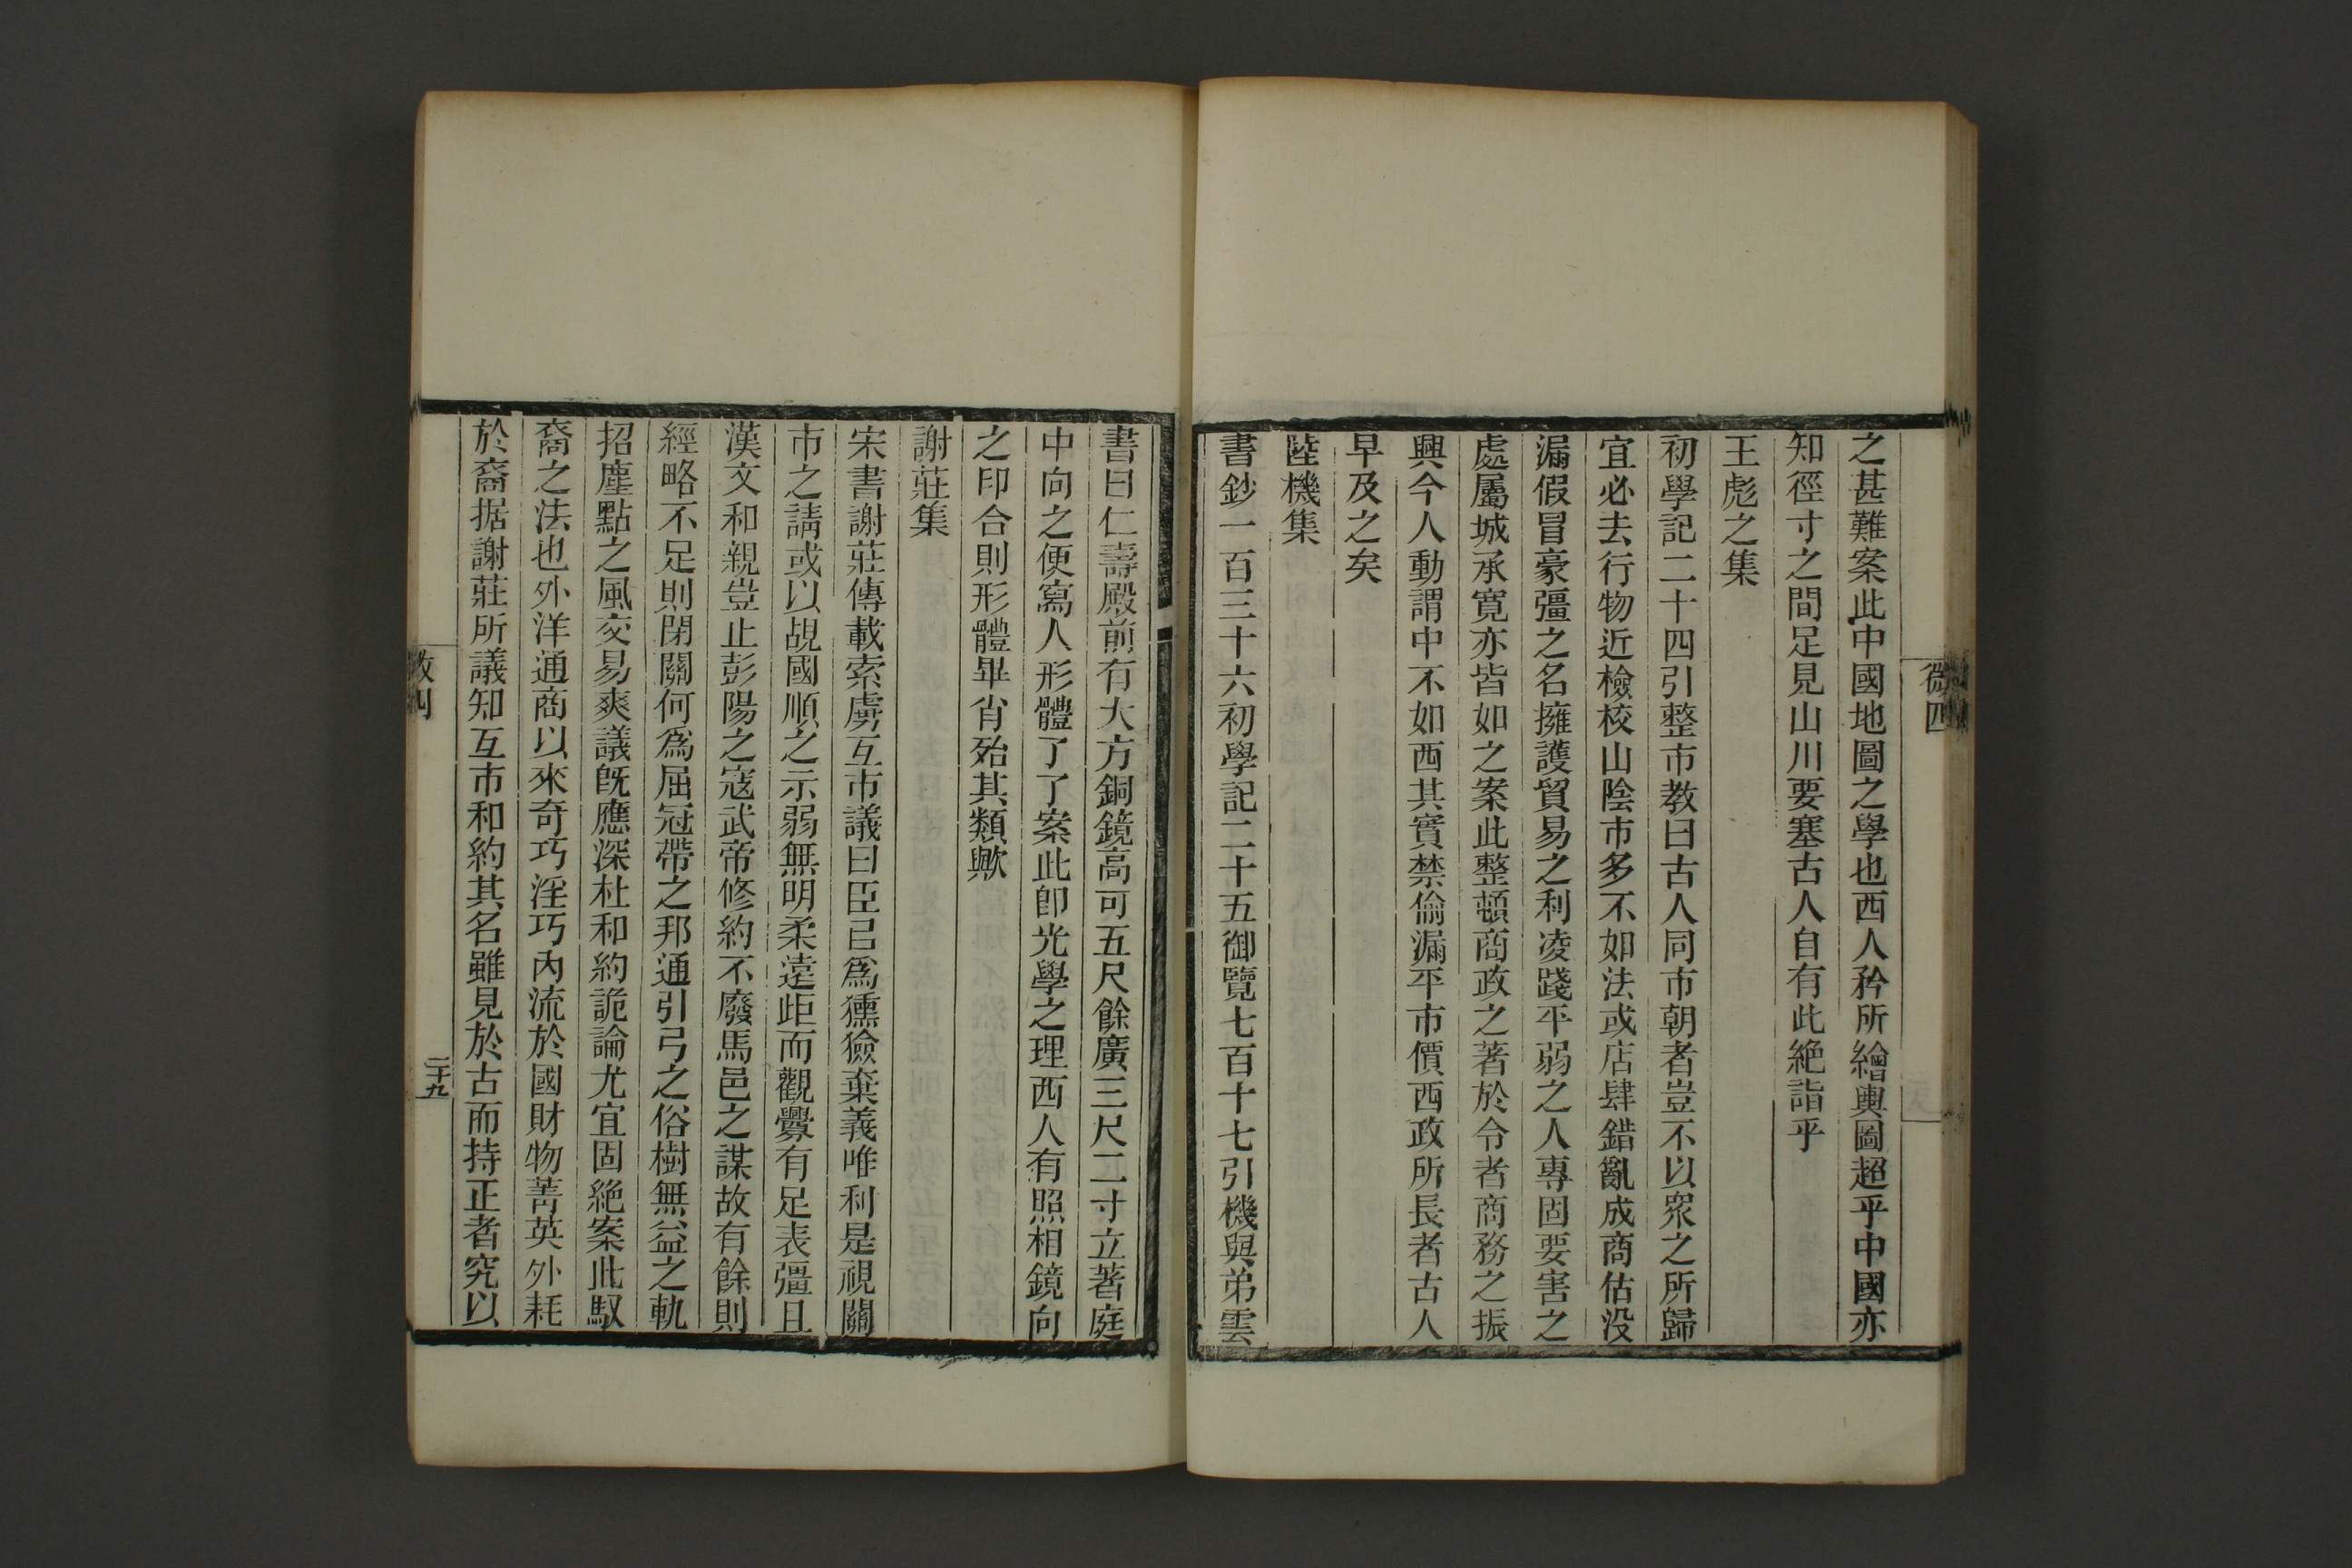 微四
之甚難案此中國地圖之學也西人矜所繪輿圖超乎中國亦
知徑寸之間足見山川要塞古人自有此絶詣乎
王彪之集
初學記二十四引整市教曰古人同市朝者豈不以衆之所歸
宜必去行物近檢校山陰市多不如法或店肆錯亂成商估没
漏假冒豪彊之名擁護貿易之利凌踐平弱之人專固要害之
處屬城承寛亦皆如之案此整頓商政之著於令者商務之振
興今人動謂中不如西其實禁偷漏平市價西政所長者古人
早及之矣
陸機集
書鈔一百三十六初學記二十五御覽七百十七引機與弟雲
書曰仁壽殿前有大方銅鏡高可五尺餘廣三尺二寸立著庭
中向之便寫人形體了了案此卽光學之理西人有照相鏡向
之印合則形體畢肖殆其類歟
謝莊集
宋書謝莊傳載索虜互市議曰臣㠯爲獯獫棄義唯利是視關
市之請或以覘國順之示弱無明柔遠距而觀釁有足表彊且
漢文和親豈止彭陽之寇武帝修約不廢馬邑之謀故有餘則
經略不足則閉關何爲屈冠帶之邦通引弓之俗樹無益之軌
招塵點之風交易爽議旣應深杜和約詭論尤宜固絶案此馭
裔之法也外洋通商以來奇巧淫巧內流於國財物菁英外耗
於裔据謝莊所議知互市和約其名雖見於古而持正者究以
二十九